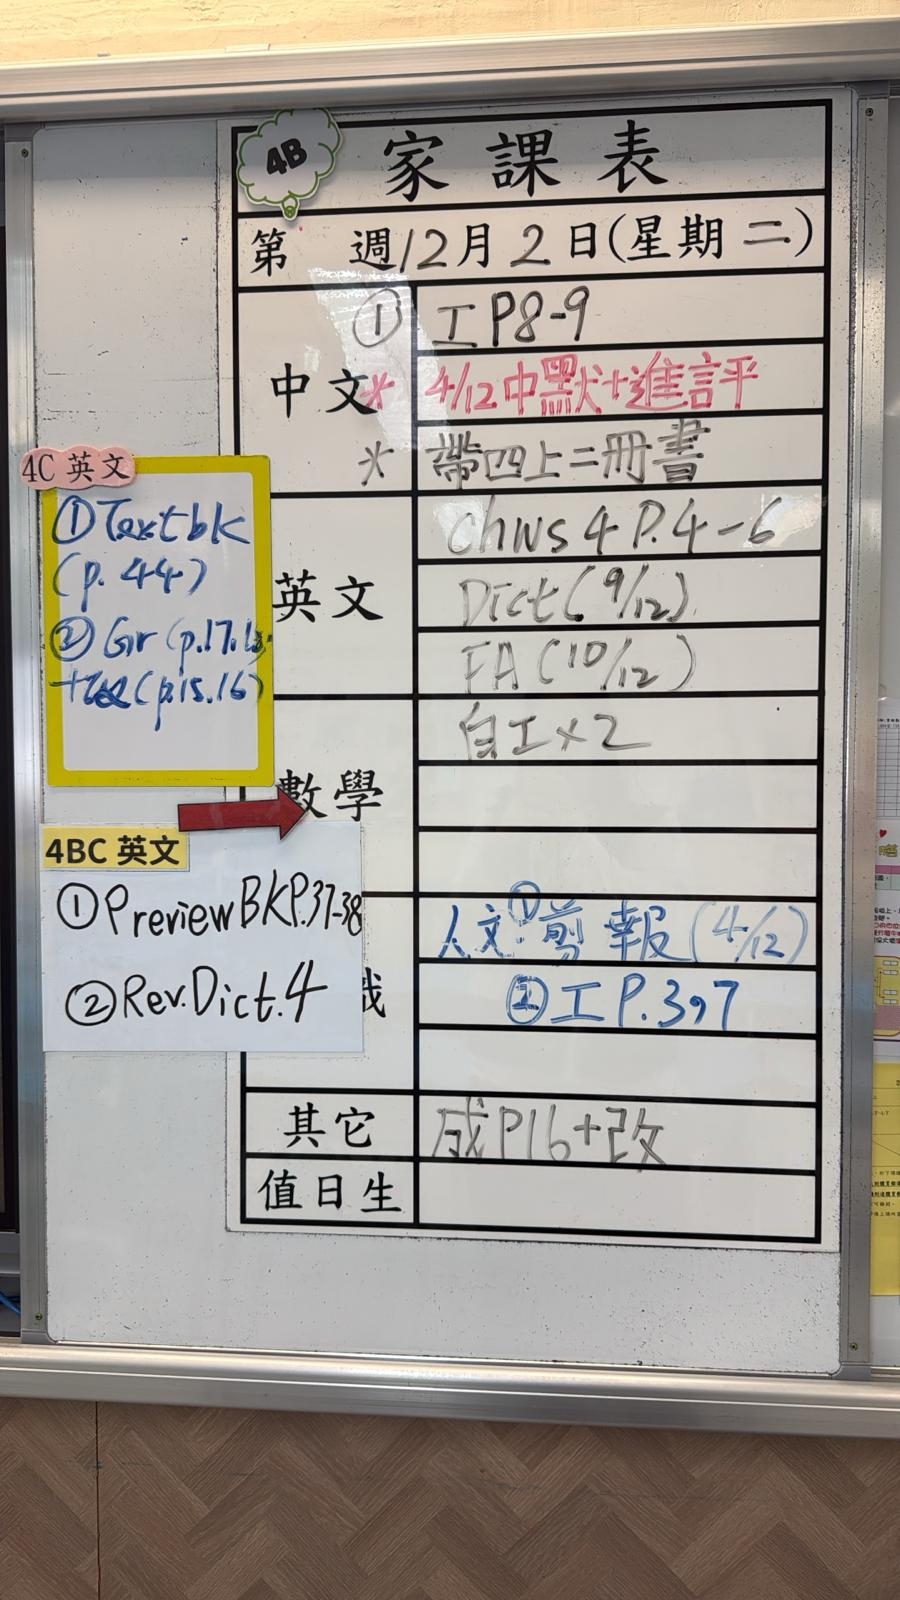 4B
家課表
第 週12月2日(星期二)
中文
① 工P8-9
* 4/12中默+進評
* 帶四上二冊書
英文
Chws 4 P.4-6
Dict(9/12)
FA(10/12)
數學
自工×2
人文:①剪報(4/12)
②工P.3,7
其它
成P16+改
值日生
4C 英文
①Textbk
(p.44)
②Gr(p.17,
(p.15.16)
4BC 英文
①Preview BK P.37-38
②Rev.Dict.4